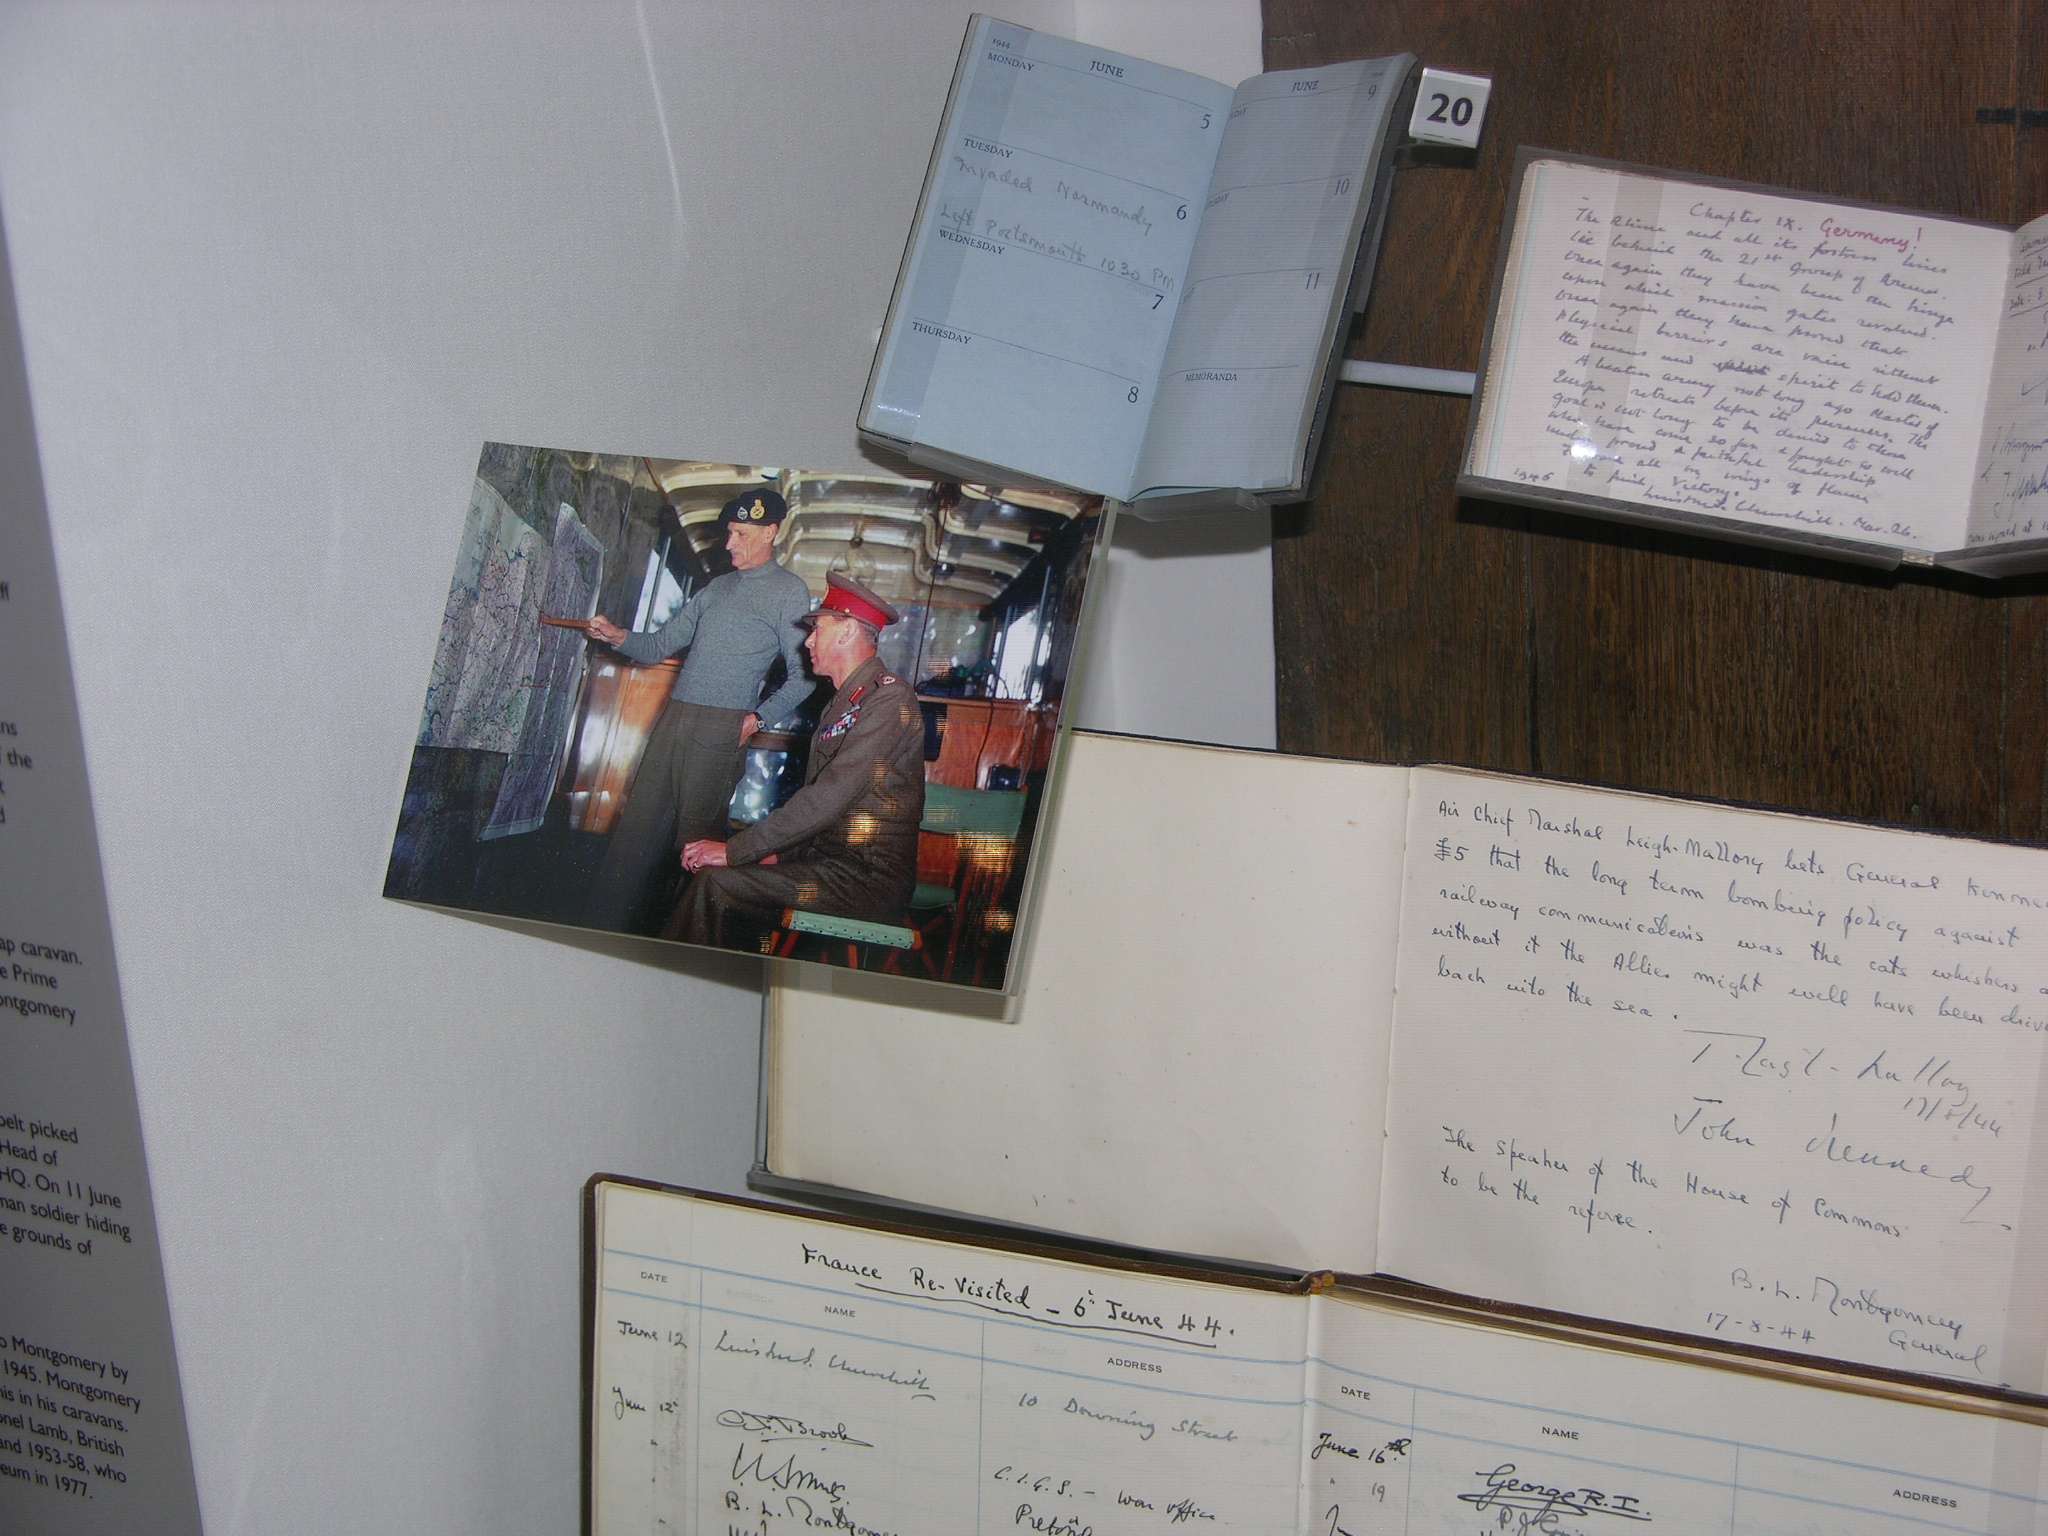 1944
MONDAY
JUNE
5
TUESDAY
Invaded Normandy
6
Left Portsmouth 1030 PM
WEDNESDAY
7
THURSDAY
8
JUNE
9
10
11
MEMORANDA
20
Chapter IX. Germany!
"The Rhine and all its fortress lines
lie behind the 21st Group of Armies.
Once again they have been the hinge
upon which massive gates revolved.
Once again they have proved that
physical barriers are vain without
the means and spirit to hold them.
A beaten army not long ago Master of
Europe retreats before its pursuers. The
goal is not long to be denied to those
who have come so far & fought so well
under proud & faithful leadership
Forward all on wings of flame
to final Victory.
1945 Winston S. Churchill. Mar. 26.
Air Chief Marshal Leigh-Mallory bets General
£5 that the long term bombing policy against
railway communications was the cats whiskers
without it the Allies might well have been
back into the sea.
Leigh-Mallory
17/8/44
John Kennedy
The Speaker of the House of Commons
to be the referee.
B. L. Montgomery
General
17-8-44
France Re-Visited - 6th June 44.
DATE
NAME
ADDRESS
June 12 Winston S. Churchill 10 Downing Street
June 12 Brooke C.I.G.S. - War Office
" Pretoria
" B. L. Montgomery
DATE
NAME
ADDRESS
June 16th George R.I.
" 19
ff
ns
the
t
d
ap caravan.
e Prime
ontgomery
belt picked
Head of
HQ. On 11 June
man soldier hiding
e grounds of
o Montgomery by
1945. Montgomery
his in his caravans.
onel Lamb, British
and 1953-58, who
eum in 1977.